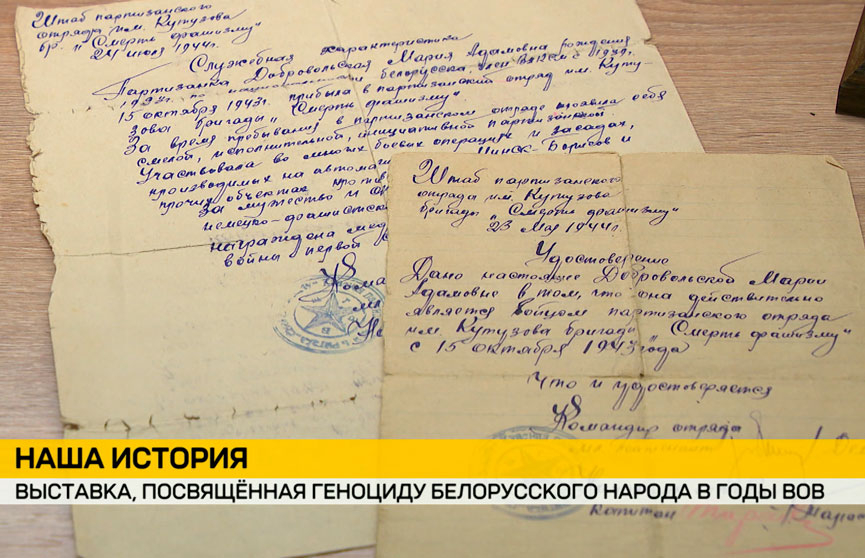 Штаб партизанского
отряда им. Кутузова
бр. „Смерть фашизму"
24 июля 1944г.
Служебная характеристика
Партизанка Добровольская Мария Адамовна рождения
белорусска, член ВЛКСМ с
15 октября 1943г. прибыла в партизанский отряд им. Куту-
зова бригады „Смерть фашизму"
За время пребывания в партизанском отряде проявила себя
смелой, исполнительной, инициативной партизанкой
Участвовала во многих боевых операциях и засадах,
производимых на автомаги Минск-Борисов и
прочих объектах против
За мужество и
немецко-фашистск
награждена мед
войны первой
Штаб партизанского
отряда им. Кутузова
бригады „Смерть фашизму"
23 мая 1944г.
Удостоверение
Дано настоящее Добровольской Марии
Адамовне в том, что она действительно
является бойцом партизанского отряда
им. Кутузова бригады „Смерть фашизму"
с 15 октября 1943 года
Что и удостоверяется
Командир отряда
НАША ИСТОРИЯ
ВЫСТАВКА, ПОСВЯЩЁННАЯ ГЕНОЦИДУ БЕЛОРУССКОГО НАРОДА В ГОДЫ ВОВ
капитан